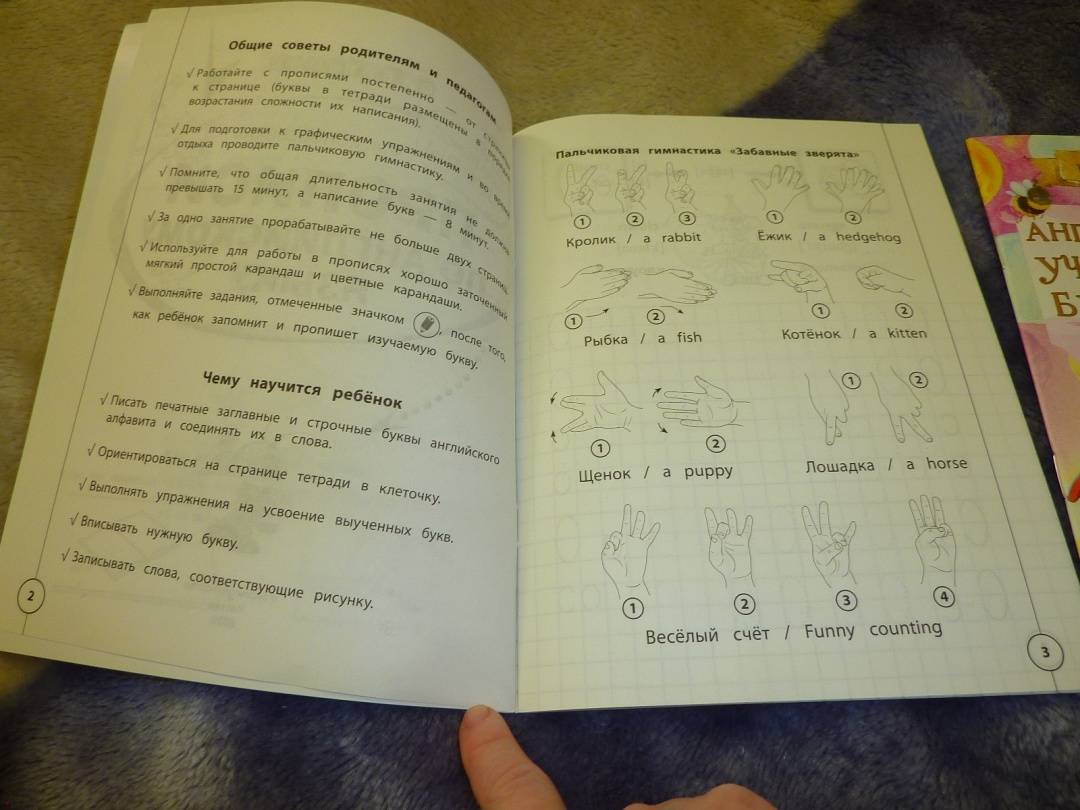 Общие советы родителям и педагогам
√ Работайте с прописями постепенно — от страницы
к странице (буквы в тетради размещены в порядке
возрастания сложности их написания).
√ Для подготовки к графическим упражнениям и во время
отдыха проводите пальчиковую гимнастику.
√ Помните, что общая длительность занятия не должна
превышать 15 минут, а написание букв — 8 минут.
√ За одно занятие прорабатывайте не больше двух страниц.
√ Используйте для работы в прописях хорошо заточенный
мягкий простой карандаш и цветные карандаши.
√ Выполняйте задания, отмеченные значком , после того,
как ребёнок запомнит и пропишет изучаемую букву.
Чему научится ребёнок
√ Писать печатные заглавные и строчные буквы английского
алфавита и соединять их в слова.
√ Ориентироваться на странице тетради в клеточку.
√ Выполнять упражнения на усвоение выученных букв.
√ Вписывать нужную букву.
√ Записывать слова, соответствующие рисунку.
2
Пальчиковая гимнастика «Забавные зверята»
1 2 3 1 2
Кролик / a rabbit Ёжик / a hedgehog
1 2 1 2
Рыбка / a fish Котёнок / a kitten
1 2 1 2
Щенок / a puppy Лошадка / a horse
1 2 3 4
Весёлый счёт / Funny counting
3
АНГ
УЧ